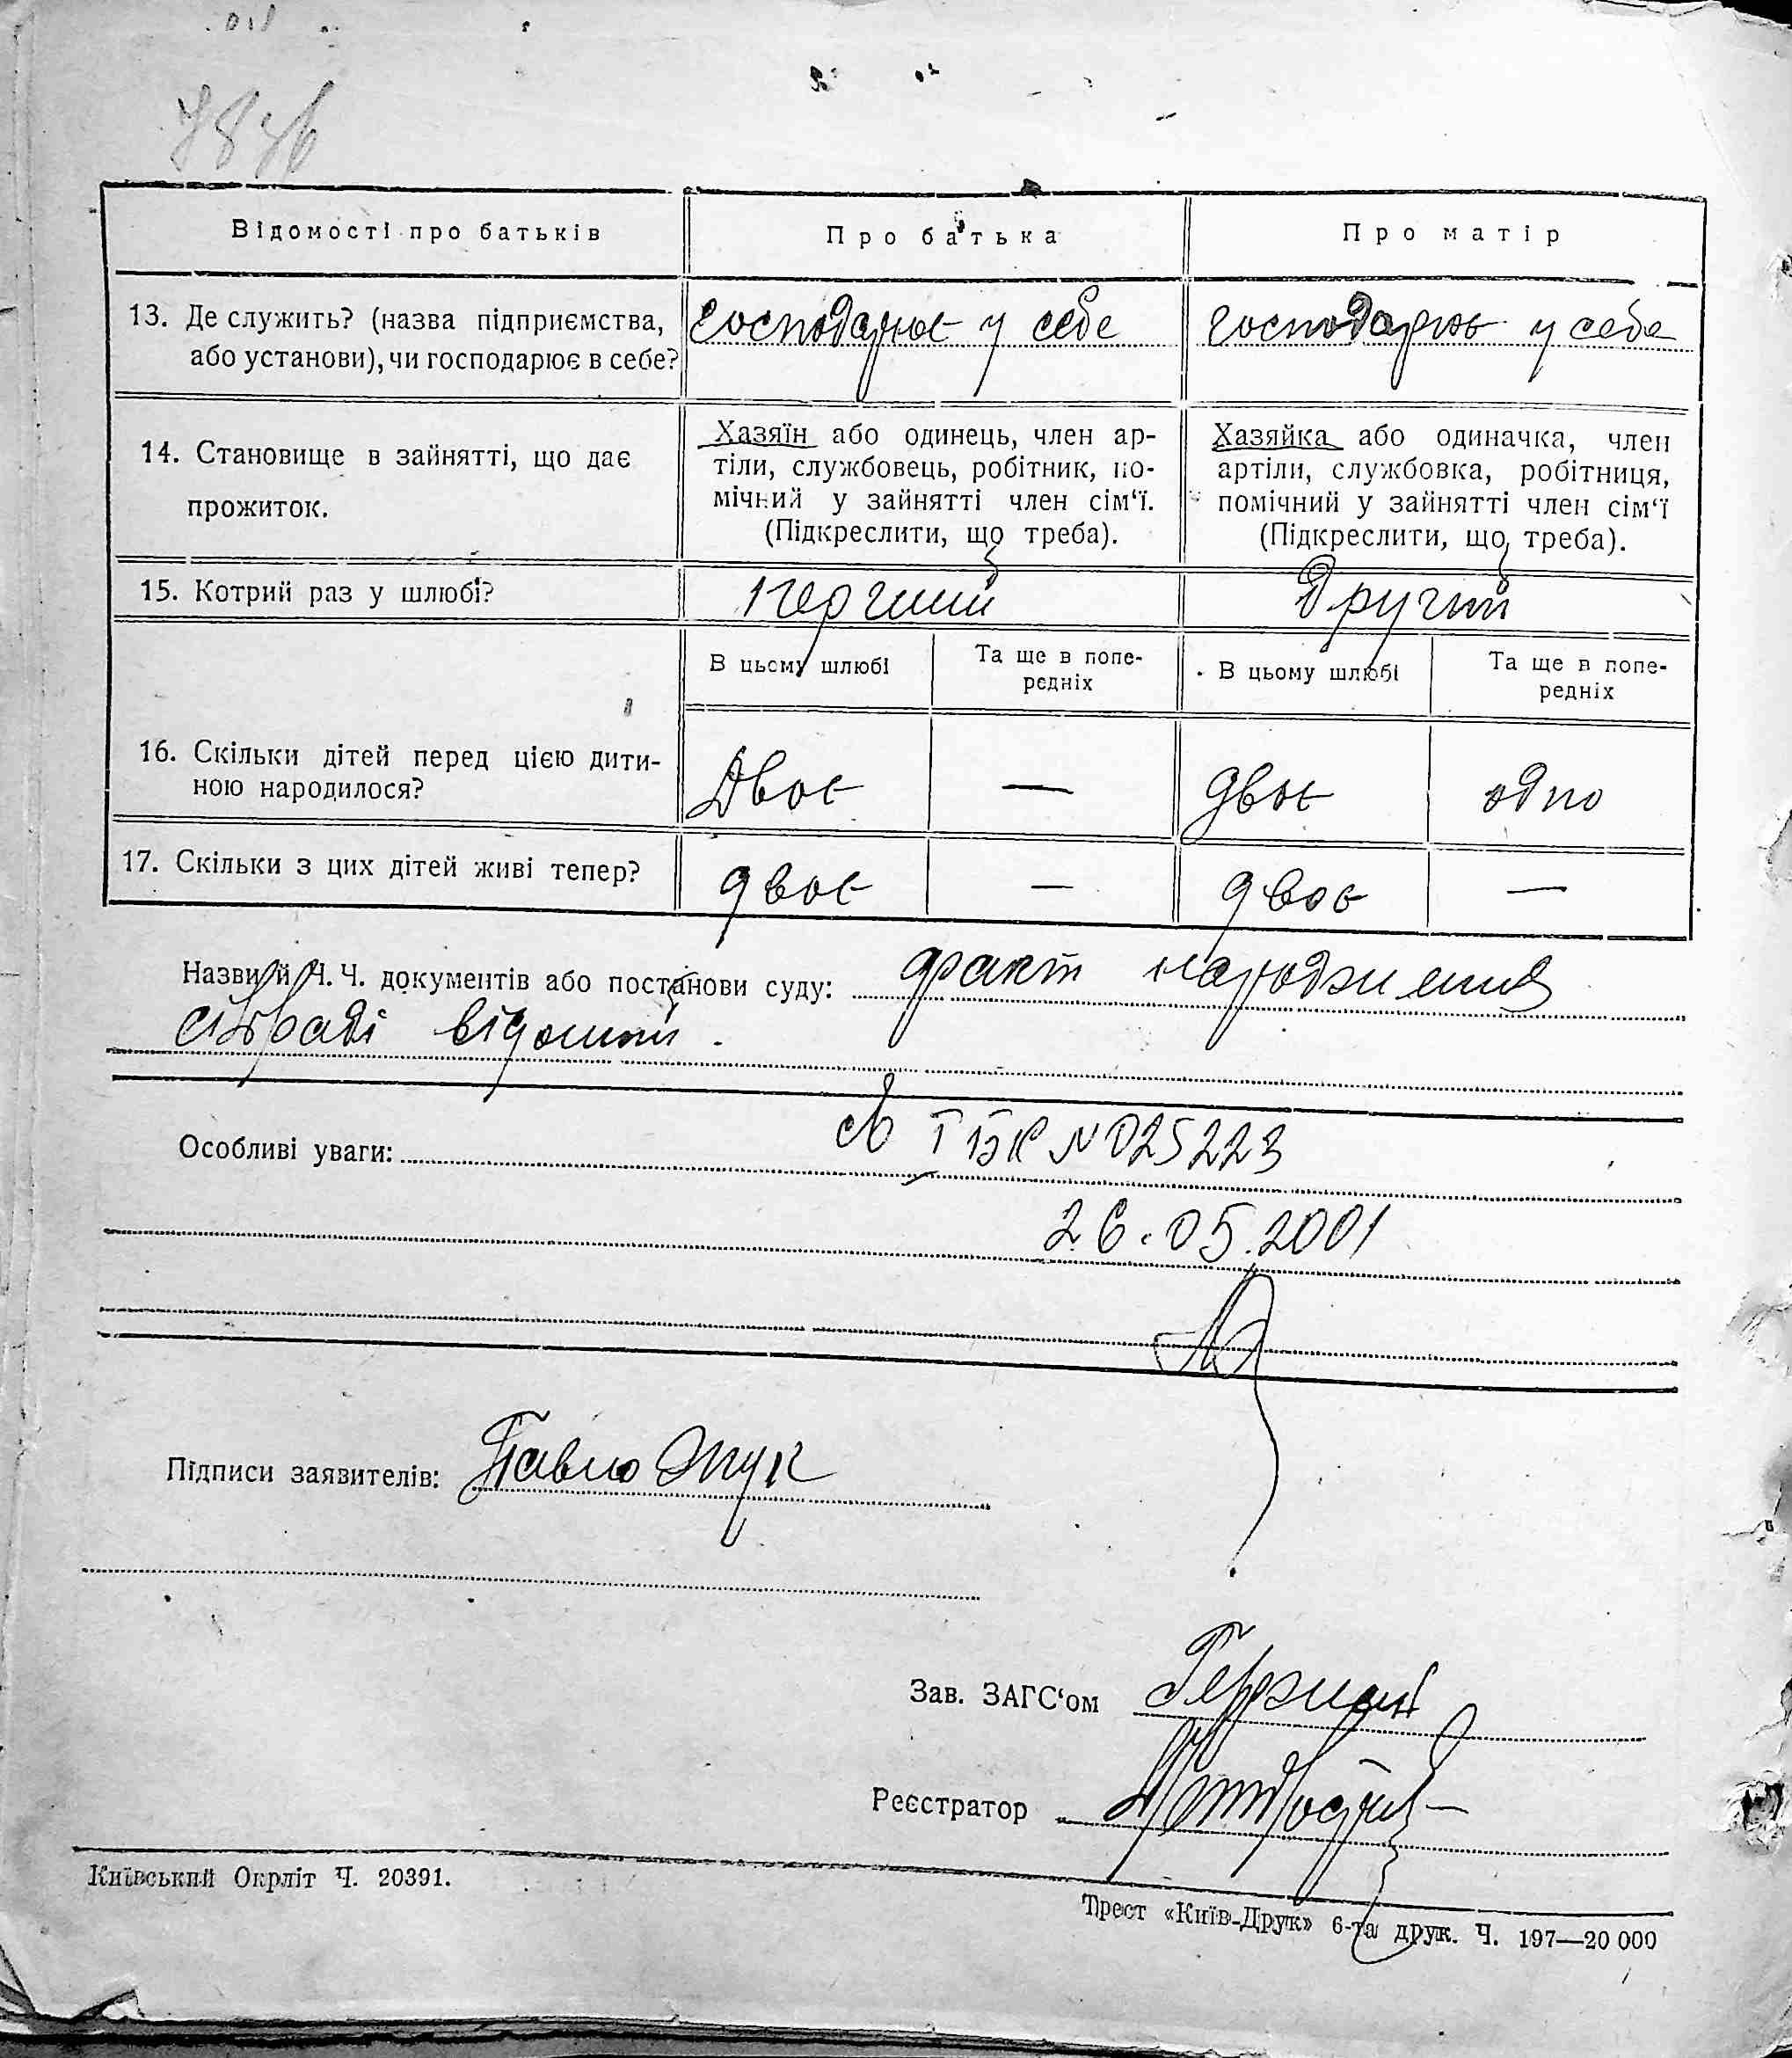 Відомості про батьків
Про батька
Про матір
13. Де служить? (назва підприємства,
або установи), чи господарює в себе?
господарює у себе
господарює у себе
14. Становище в зайнятті, що дає
прожиток.
Хазяїн або одинець, член ар-
тіли, службовець, робітник, по-
мічний у зайнятті член сім‘ї.
(Підкреслити, що треба).
Хазяйка або одиначка, член
артіли, службовка, робітниця,
помічний у зайнятті член сім‘ї
(Підкреслити, що треба).
15. Котрий раз у шлюбі?
перший
другий
В цьому шлюбі
Та ще в попе-
редніх
В цьому шлюбі
Та ще в попе-
редніх
16. Скільки дітей перед цією дити-
ною народилося?
Двоє
—
двоє
одно
17. Скільки з цих дітей живі тепер?
двоє
—
двоє
—
Назви й Ч. Ч. документів або постанови суду: факт народження
сільраді відомий.
Особливі уваги: І БК № 025223
26.05.2001
Підписи заявителів: Павло
Зав. ЗАГС‘ом
Реєстратор
Київський Окрліт Ч. 20391.
Трест «Київ-Друк» 6-та друк. Ч. 197—20 000